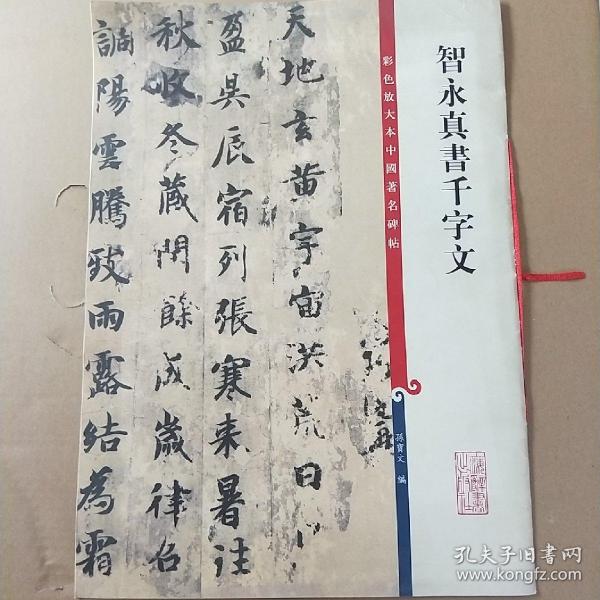 智永真書千字文
彩色放大本中國著名碑帖
孫寶文 編
天地玄黄宇宙洪荒日
盈昃辰宿列張寒来暑往
秋收冬藏閏餘成歲律召
調陽雲騰致雨露結為霜
孔夫子旧书网
www.kongfz.com